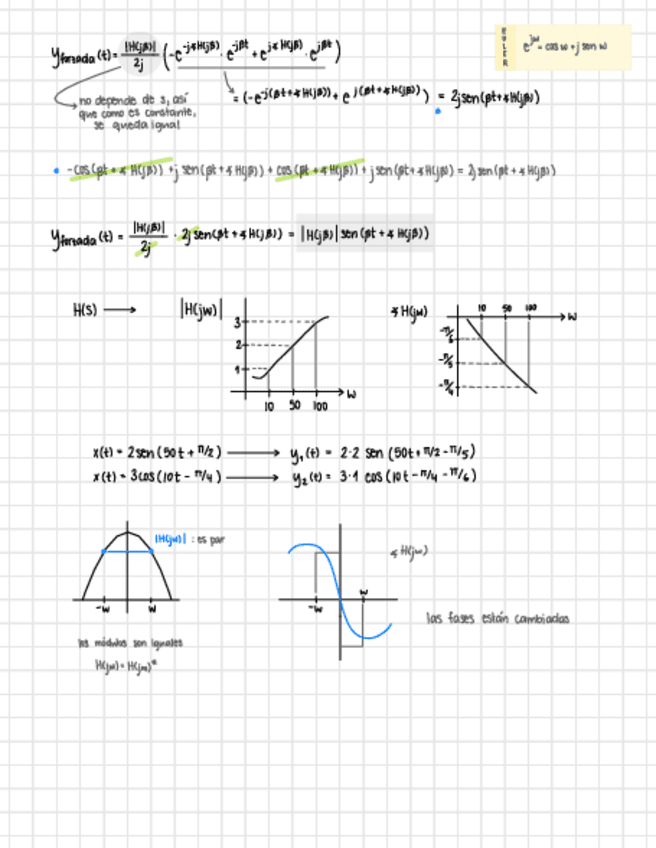 y_forzada (t) = |H(jβ)| / 2j (-e^(-j∡H(jβ)) · e^(-jβt) + e^(j∡H(jβ)) · e^(jβt))
EULER
e^(jω) = cos ω + j sen ω
no depende de s, así
que como es constante,
se queda igual
= (-e^(-j(βt+∡H(jβ))) + e^(j(βt+∡H(jβ)))) = 2jsen(βt+∡H(jβ))
-cos(βt + ∡H(jβ)) + j sen(βt+∡H(jβ)) + cos(βt + ∡H(jβ)) + j sen(βt+∡H(jβ)) = 2j sen(βt + ∡H(jβ))
y_forzada (t) = |H(jβ)| / 2j · 2j sen(βt + ∡H(jβ)) = |H(jβ)| sen(βt + ∡H(jβ))
H(s) → |H(jω)|
3
2
1
10 50 100 ω
∡H(jω)
10 50 100 ω
-π/6
-π/5
-π/4
x(t) = 2sen(50t + π/2) → y₁(t) = 2·2 sen (50t + π/2 - π/5)
x(t) = 3cos(10t - π/4) → y₂(t) = 3·1 cos (10t - π/4 - π/6)
|H(jω)| : es par
-ω ω
los módulos son iguales
H(jω) = H(jω)*
∡H(jω)
-ω ω
las fases están cambiadas